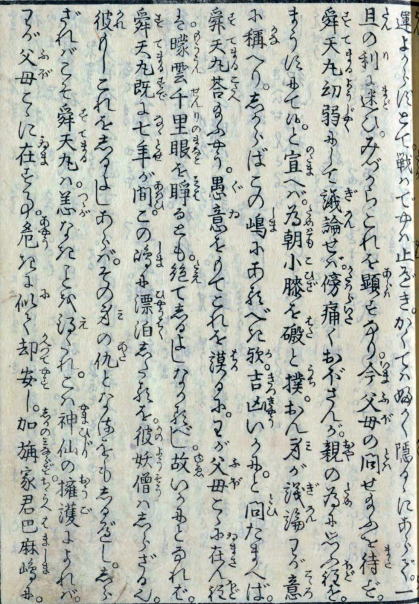 運よからばとて戦はでやは止べき。かくては婦よく隠すにあらず。一
旦の利に迷ひ。みづからこれを顕せるなり。今父母の問せ給ふを待で。
舜天丸幼弱にして議論せば。傍痛くおぼさんが。親の為には
まうすにて候と宣へば。為朝小膝を礑と撲。おん身が議論わが意
に稱へり。しからばこの嶋にあるべき歟。吉凶いかにと問たまへば。
舜天丸荅給ふやう。愚意をもてこれを謀るに。わが父母こゝに在ス程
は。曚雲千里眼を睜るとも。絶てしるよしなかるべし。故いかにとなれば。
舜天丸既に七年が間この嶋に漂泊したるを。彼妖僧はしらざるなり。
彼もしこれをしるよしあらば。その身の仇となるをもしるべし。しら
ざればこそ舜天丸は恙なきことを得たれ。こは神仙の擁護によれば。
わが父母こゝに在する。危きに似て却安し。加旃家君巴麻嶋に。